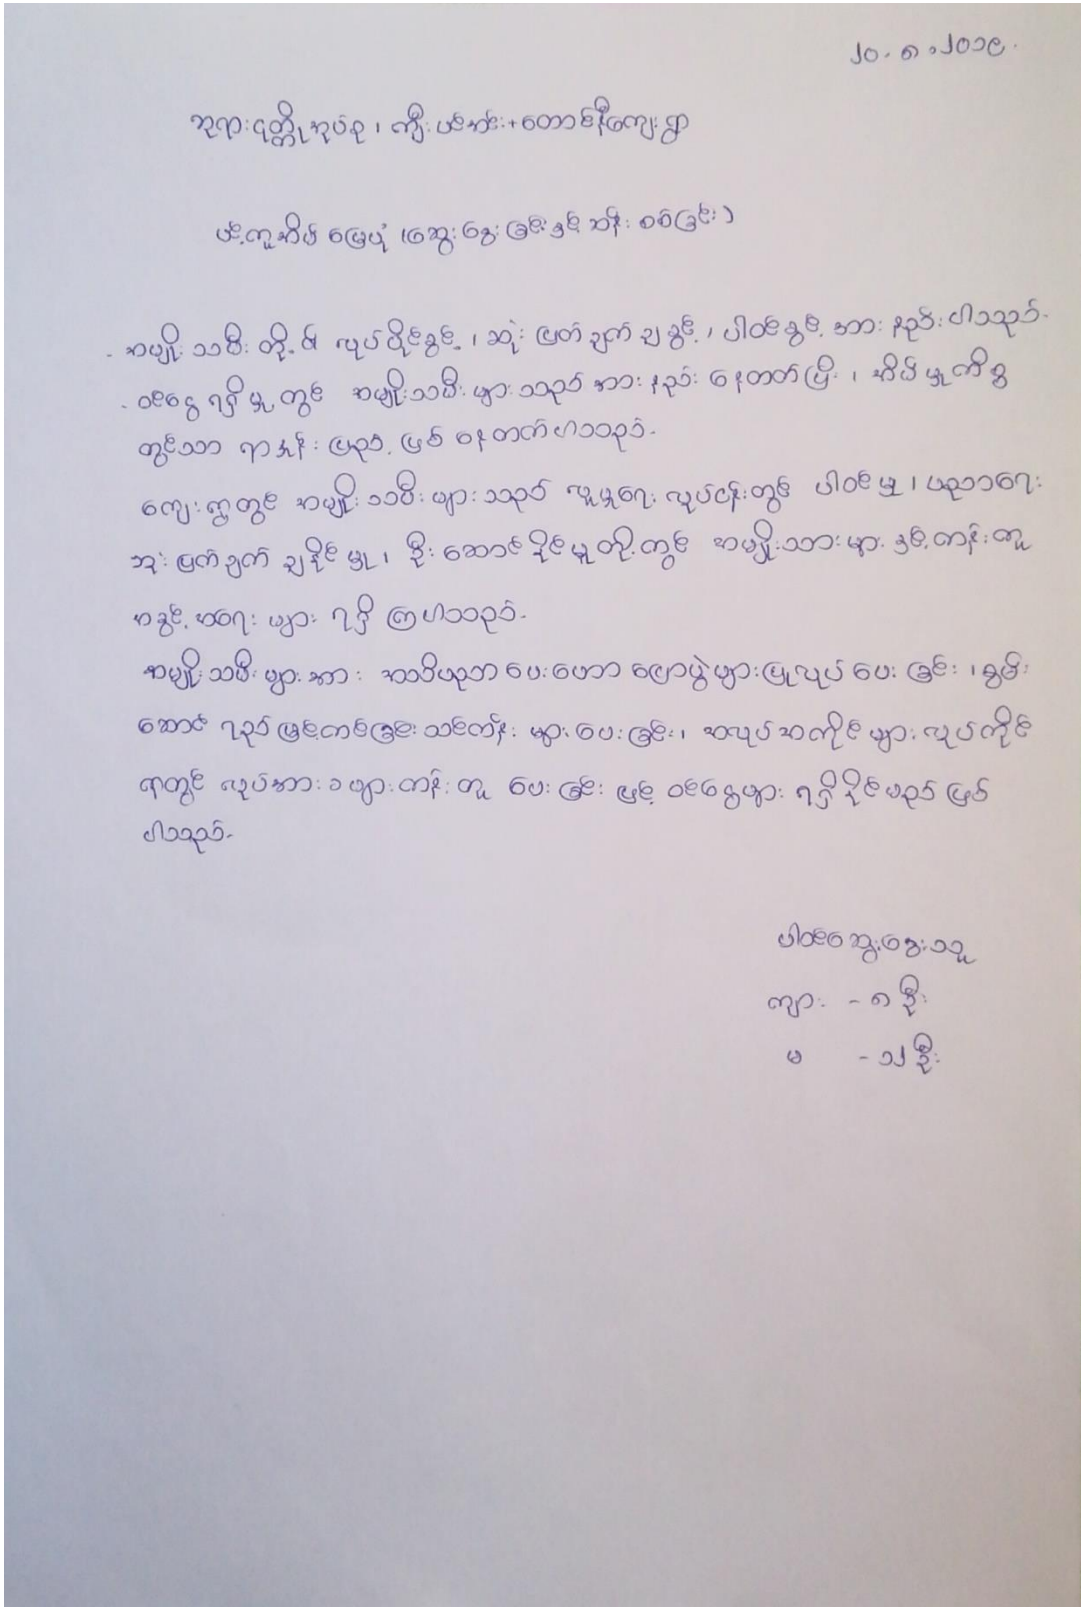 ၂၀.၈.၂၀၁၉.
ဘုရားငုတ္တိုအုပ်စု၊ ကျီးပင်အင်း+တောင်နီကျေးရွာ
ပင့်ကူအိမ်မြေပုံ (ဆွေးနွေးခြင်းနှင့်ဆန်းစစ်ခြင်း)
- အမျိုးသမီးတို့၏ လုပ်ပိုင်ခွင့်၊ ဆုံးဖြတ်ချက်ချခွင့်၊ ပါဝင်ခွင့်အားနည်းပါသည်.
- ဝင်ငွေရရှိမှုတွင် အမျိုးသမီးများသည်အားနည်းနေတတ်ပြီး၊ အိမ်မှုကိစ္စ
တွင်သာ ရာနှုန်းပြည့်ဖြစ်နေတက်ပါသည်.
ကျေးရွာတွင် အမျိုးသမီးများသည် လူမှုရေးလုပ်ငန်းတွင် ပါဝင်မှု၊ ပညာရေး
ဆုံးဖြက်ချက်ချနိုင်မှု၊ ဦးဆောင်နိုင်မှုတို့တွင် အမျိုးသားများနှင့်တန်းတူ
အခွင့်အရေးများ ရရှိကြပါသည်.
အမျိုးသမီးများအား အသိပညာပေးဟောပြောပွဲများပြုလုပ်ပေးခြင်း၊ စွမ်း
ဆောင်ရည်မြှင့်တင်ခြင်းသင်တန်းများပေးခြင်း၊ အလုပ်အကိုင်များလုပ်ကိုင်
ရာတွင် လုပ်အားခများတန်းတူပေးခြင်းဖြင့် ဝင်ငွေများရရှိနိုင်မည်ဖြစ်
ပါသည်.
ပါဝင်ဆွေးနွေးသူ
ကျား - ၈ ဦး
မ - ၁၂ ဦး